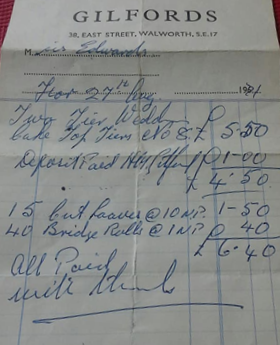 GILFORDS
38, EAST STREET, WALWORTH, S.E.17
M iss Edwards
For 27th Aug 1971
Two Tier Wedd
Cake Top Tiers £ 5-50
Deposit Paid £ 1-00
£ 4-50
15 cut loaves @ 10 NP. 1-50
40 Bridge Rolls @ 1 NP £ 0 40
£ 6-40
All Paid
with thanks